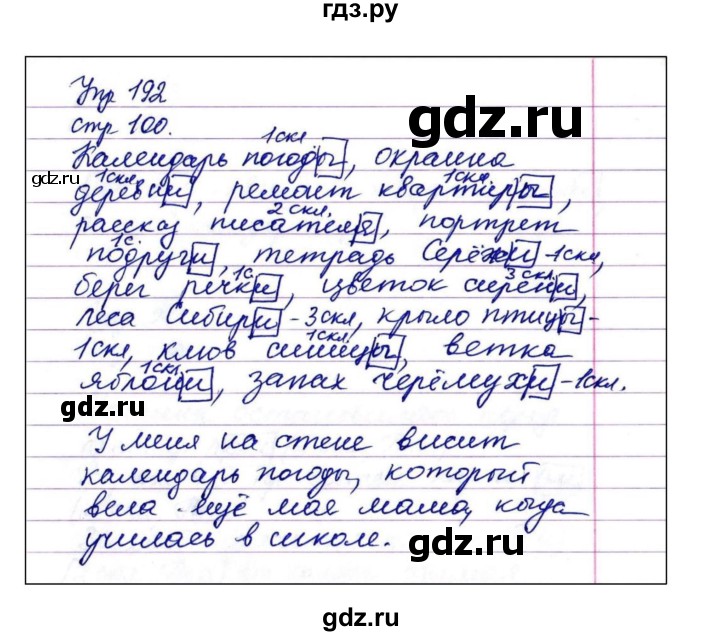 гдз.ру
Упр 192
gdz.ru
стр 100.
1скл
Календарь погоды, окраина
gdz.ru
1скл. 1скл.
деревни, ремонт квартиры,
2 скл.
рассказ писателя, портрет
1с.
подруги, тетрадь Серёжи - 1скл,
1с 3 скл.
берег речки, цветок сирени,
леса Сибири - 3 скл, крыло птицы -
1скл.
1скл, клюв синицы, ветка
1скл.
яблони, запах черёмухи - 1скл.
gdz.ru
У меня на стене висит
календарь погоды, который
вела ещё мая мама, когда
училась в школе.
gdz.ru
gdz.ru